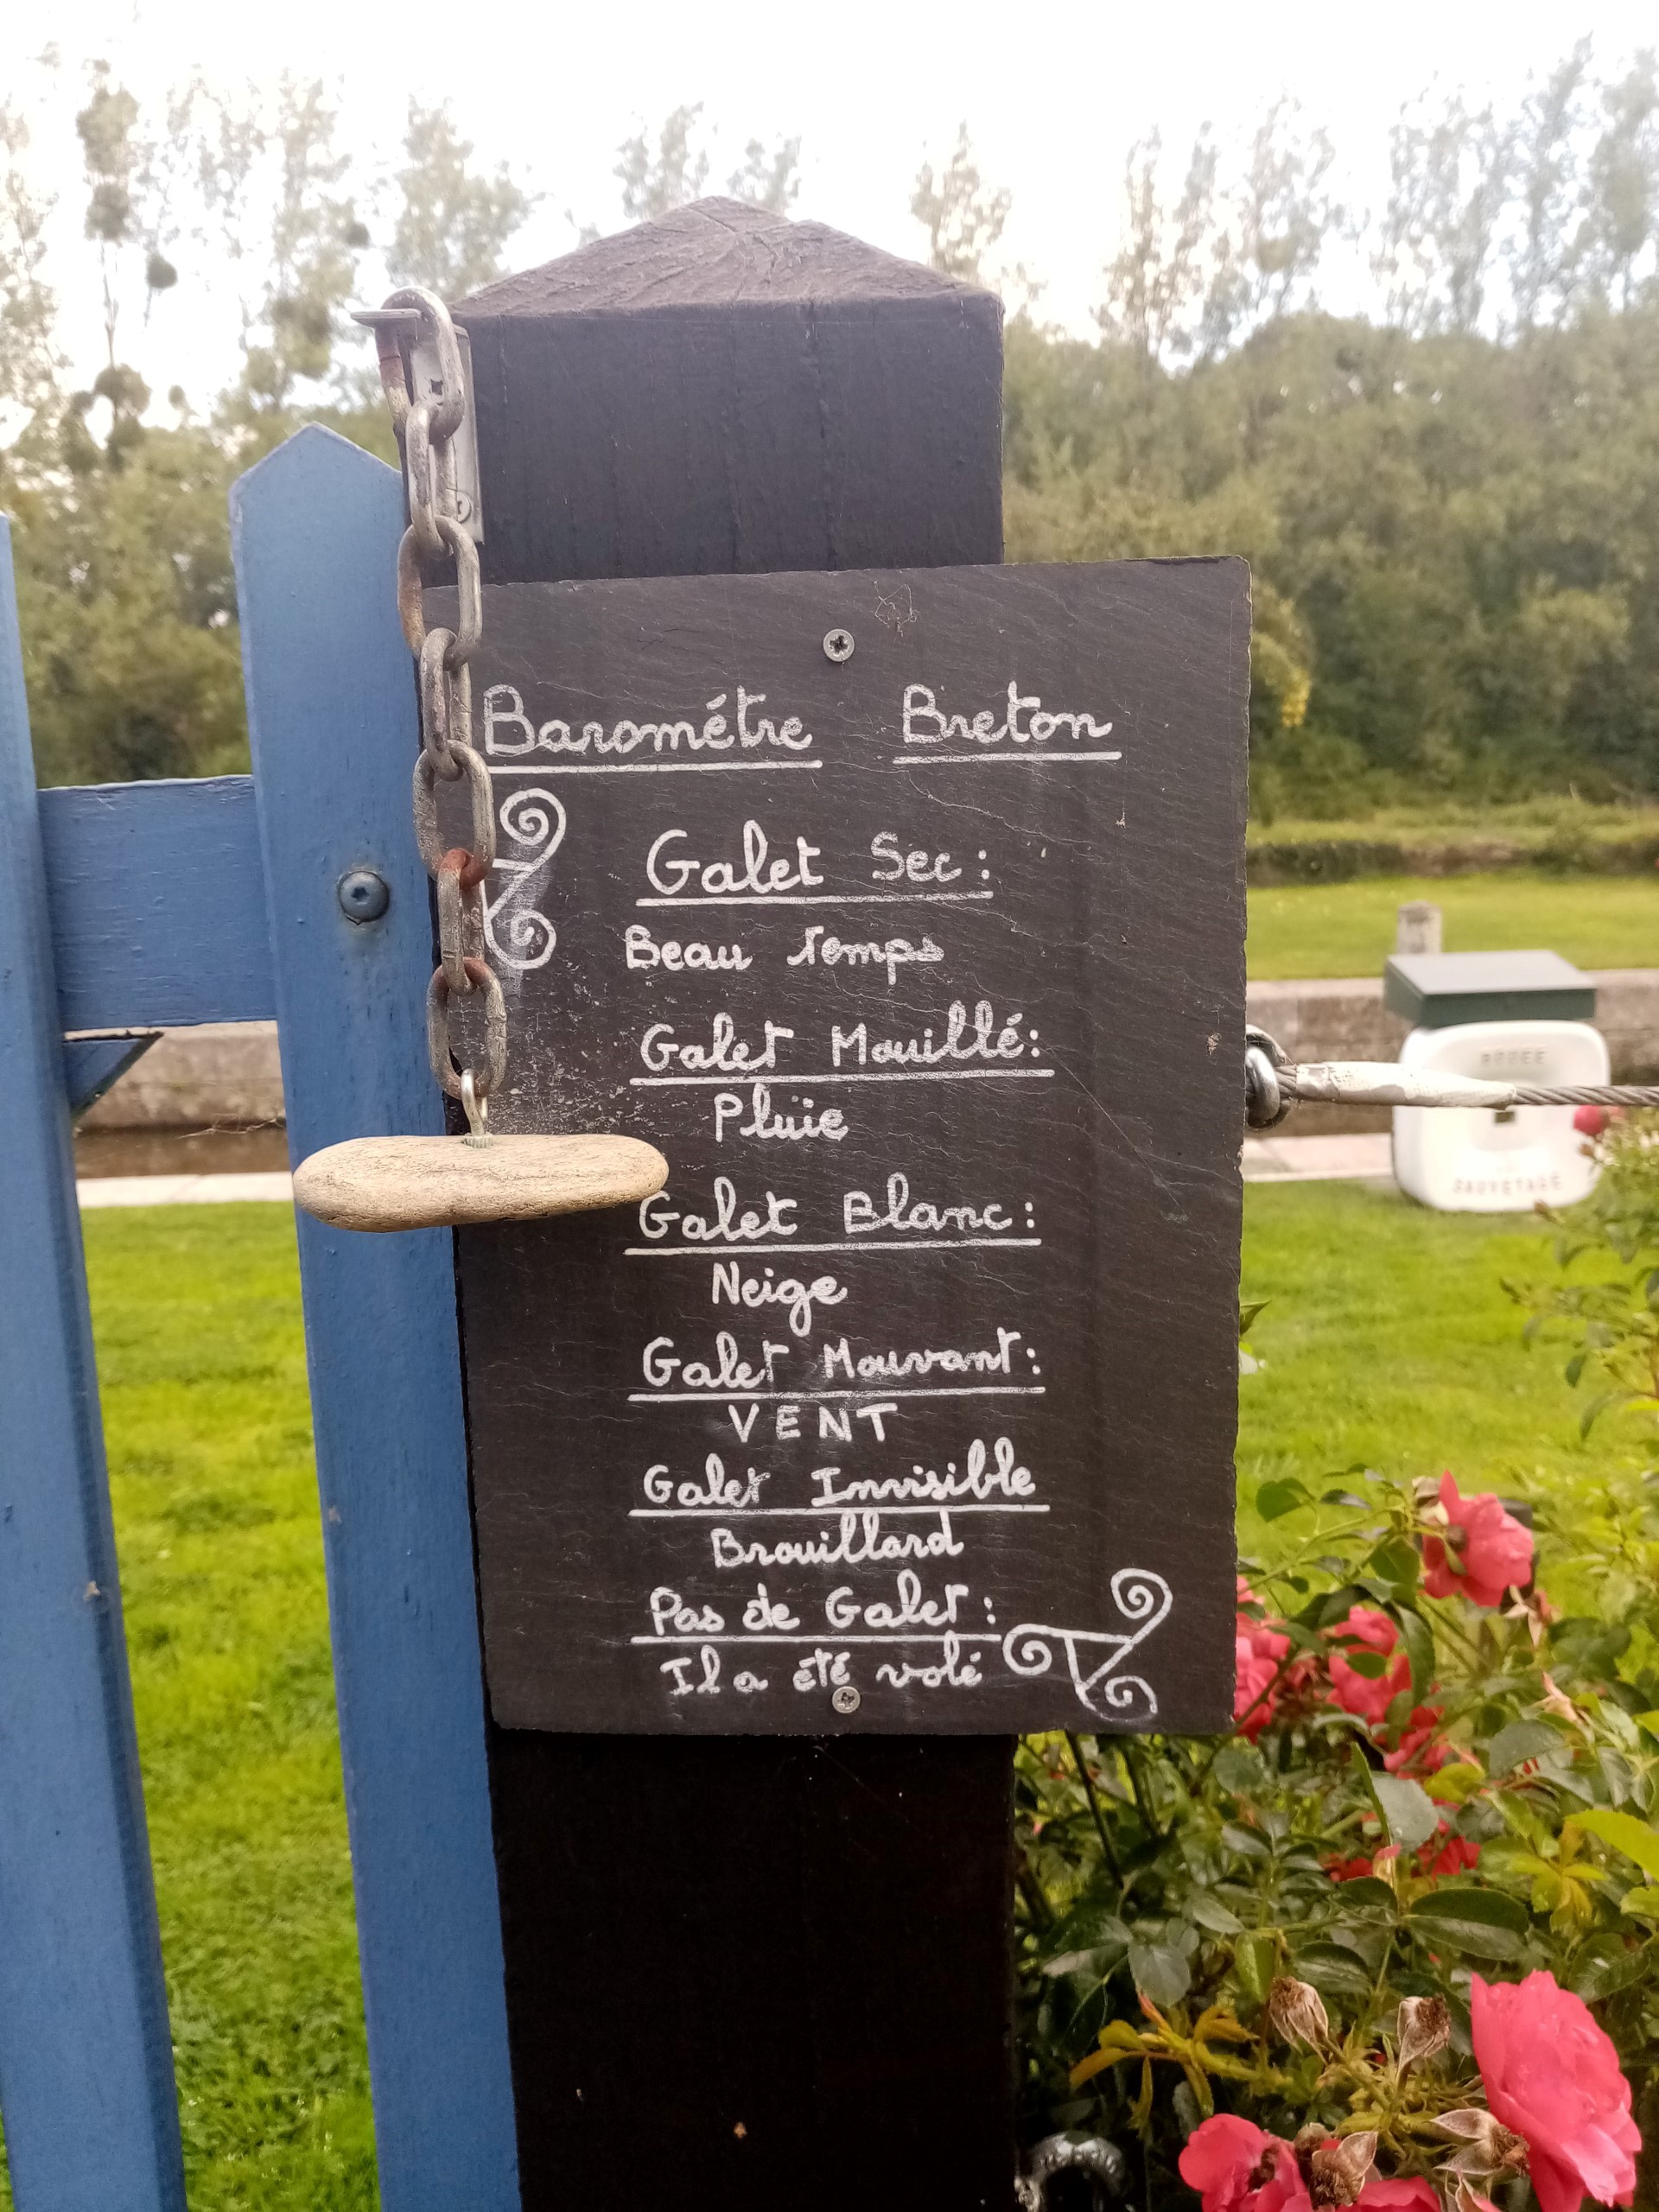 Barométre Breton
Galet Sec :
Beau temps
Galet Mouillé:
Pluie
Galet Blanc:
Neige
Galet Mouvant:
VENT
Galet Invisible
Brouillard
Pas de Galet :
Il a été volé
BOUEE
SAUVETAGE